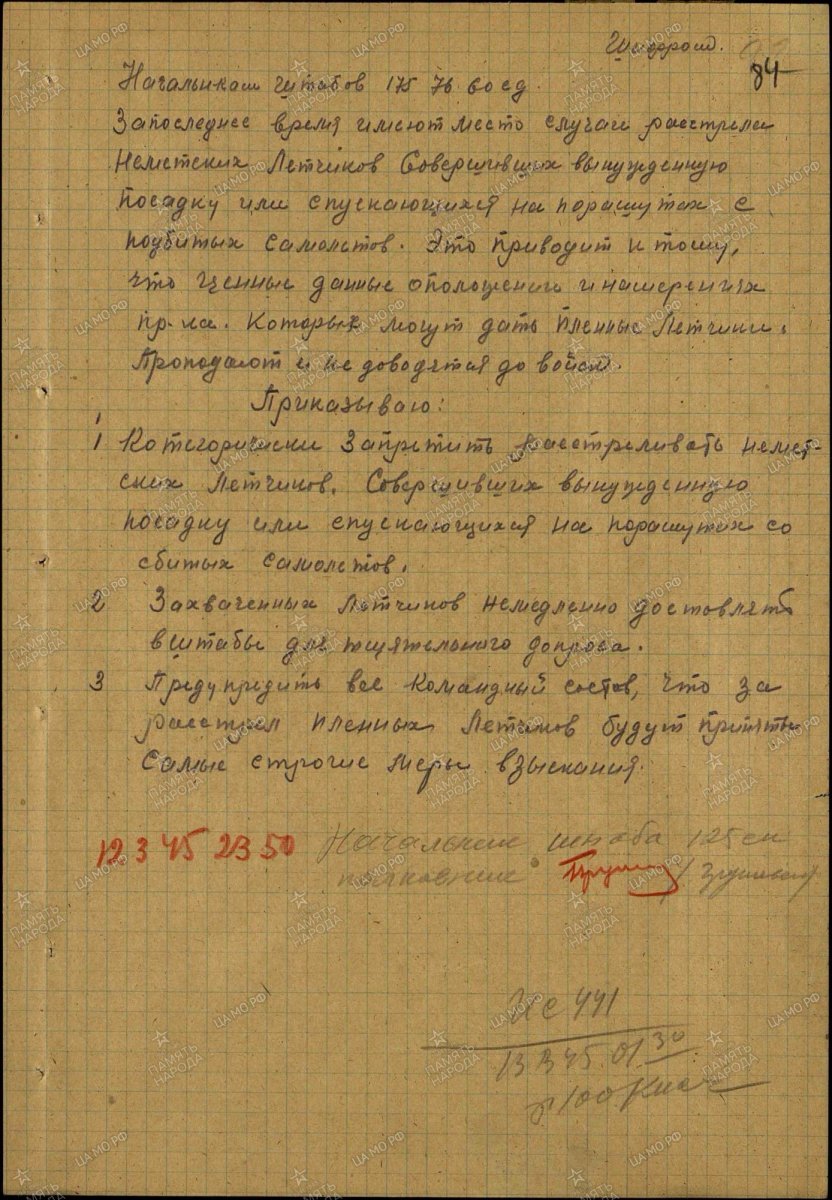 Шифром.
84
Начальникам штабов 175 76 60 сд
Запоследнее время имеют место случаи расстрела
Неметских Летчиков Совершивших вынужденную
посадку или спускающихся на порашутах с
подбитых самолетов. Это приводит к тому,
что ценные данные ополошении инамерениях
пр-ка. Которых могут дать пленные Летчики.
Проподают и не доводятся до войск.
Приказываю:
1 Котегорически Запретить расстреливать немет-
ских Летчиков. Совершивших вынужденную
посадку или спускающихся на порашутах со
сбитых самолетов.
2 Захваченных Летчиков немедленно доставлять
вштабы для тщятельного допроса.
3 Предупредить все Командный состав, что за
расстрел пленных Летчиков будут приняты
Самые строгие меры взыскания.
12 3 45 23 50 Начальник штаба 125 ск
полковник
Ис 441
13 3 45 01 30
ПАМЯТЬ НАРОДА
ЦАМО.РФ